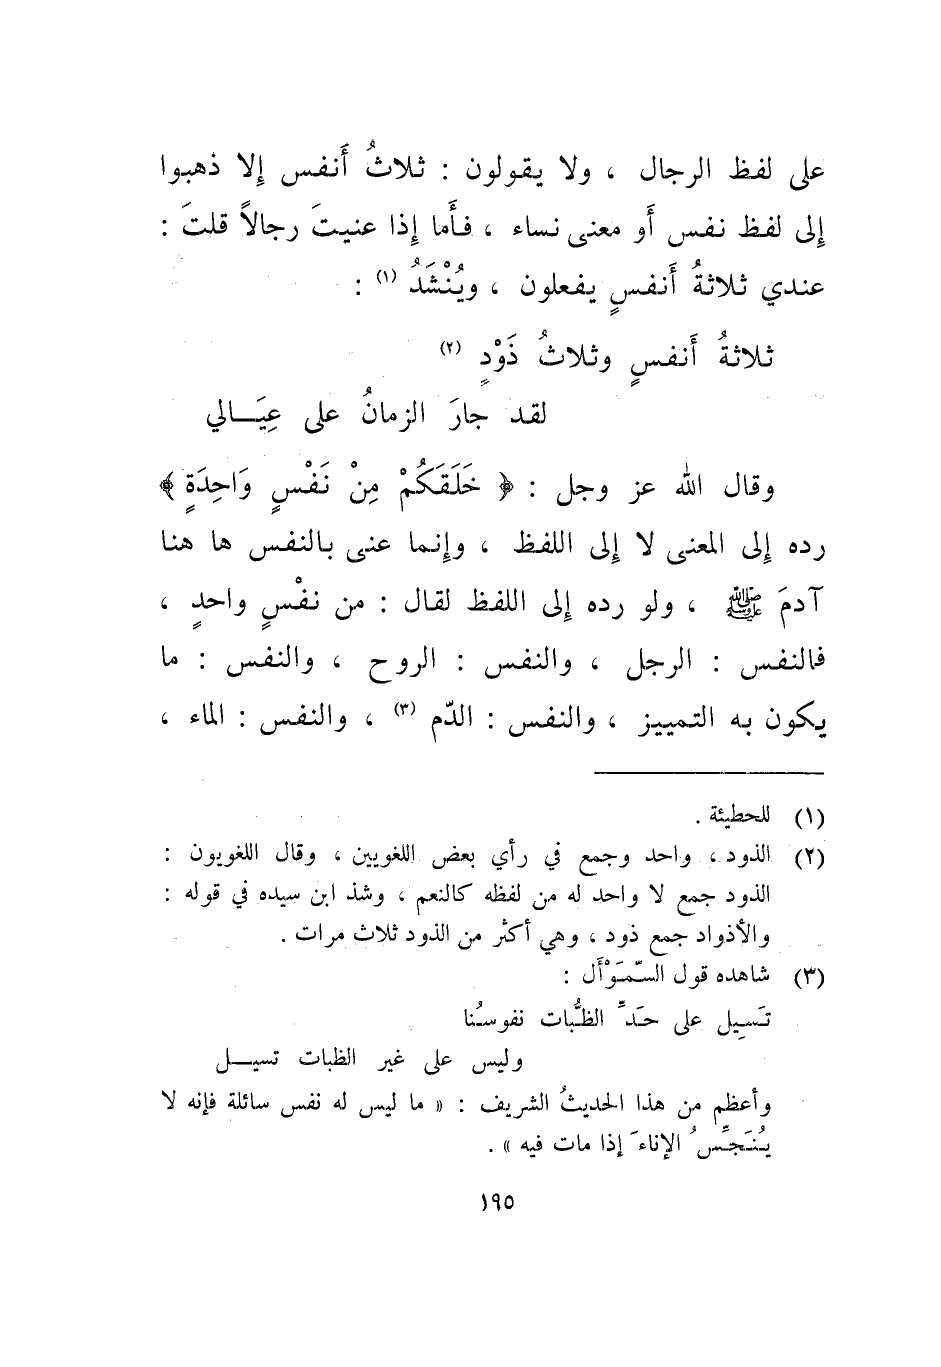 على لفظ الرجال ، ولا يقولون : ثلاثُ أَنفس إِلا ذهبوا
إِلى لفظ نفس أَو معنى نساء ، فأَما إِذا عنيتَ رجالاً قلتَ :
عندي ثلاثةُ أَنفسٍ يفعلون ، ويُنْشَدُ (١) :
ثلاثةُ أَنفسٍ وثلاثُ ذَوْدٍ (٢)
لقد جارَ الزمانُ على عِيَـالي
وقال الله عز وجل : ﴿ خَلَقَكُمْ مِنْ نَفْسٍ وَاحِدَةٍ ﴾
رده إِلى المعنى لا إِلى اللفظ ، وإِنما عنى بالنفس ها هنا
آدمَ ﷺ ، ولو رده إِلى اللفظ لقال : من نفْسٍ واحدٍ ،
فالنفس : الرجل ، والنفس : الروح ، والنفس : ما
يكون به التمييز ، والنفس : الدّم (٣) ، والنفس : الماء ،
(١) للحطيئة .
(٢) الذود ، واحد وجمع في رأي بعض اللغويين ، وقال اللغويون :
الذود جمع لا واحد له من لفظه كالنعم ، وشذ ابن سيده في قوله :
والأذواد جمع ذود ، وهي أكثر من الذود ثلاث مرات .
(٣) شاهده قول السّمَوْأَل :
تَسِيل على حَدِّ الظُّبات نفوسُنا
وليس على غير الظبات تسيـل
وأعظم من هذا الحديثُ الشريف : « ما ليس له نفس سائلة فإنه لا
يُنَجِّسُ الإناءَ إذا مات فيه » .
١٩٥